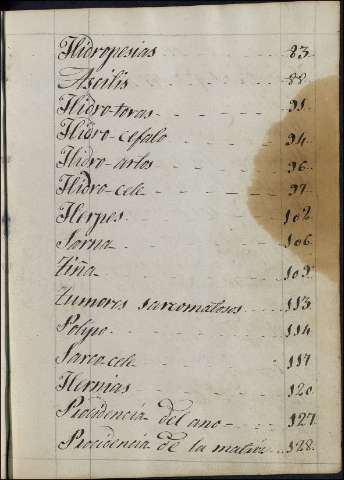 Hidropesias 83.
Ascitis 88.
Hidro-toras 91.
Hidro-cefalo 94.
Hidro-artos 96.
Hidro-cele 97.
Herpes 102.
Sarna 106.
Tiña 109.
Tumores sarcomatosos 113.
Polipo 114
Sarco-cele 117
Hernias 120
Procidencia del ano 127.
Procidencia de la matriz 128.